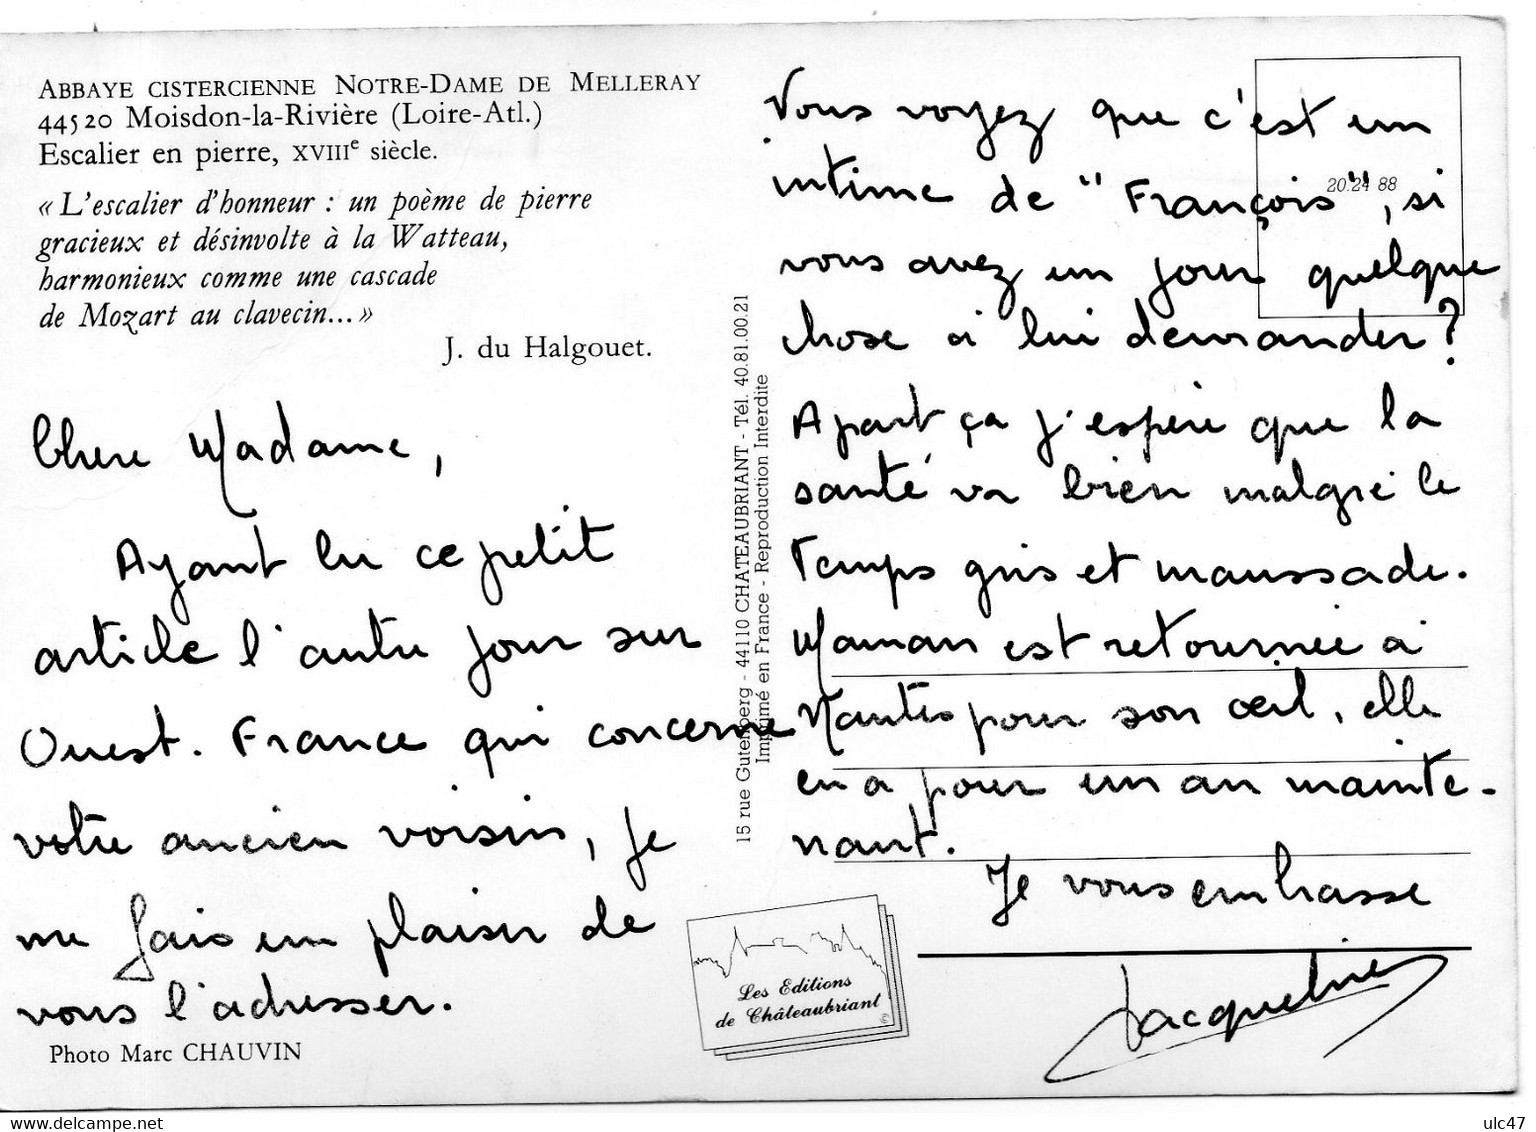 ABBAYE CISTERCIENNE NOTRE-DAME DE MELLERAY
44520 Moisdon-la-Rivière (Loire-Atl.)
Escalier en pierre, XVIIIe siècle.
« L'escalier d'honneur : un poème de pierre
gracieux et désinvolte à la Watteau,
harmonieux comme une cascade
de Mozart au clavecin... »
J. du Halgouet.
Chere Madame,
Ayant lu ce petit
article l'autre jour sur
Ouest-France qui concerne
votre ancien voisin, je
me fais un plaisir de
vous l'adresser.
Photo Marc CHAUVIN
15 rue Gutenberg - 44110 CHATEAUBRIANT - Tél. 40.81.00.21
Imprimé en France - Reproduction Interdite
Les Editions
de Châteaubriant
©
20.24 88
Vous voyez que c'est un
intime de "François", si
vous avez un jour quelque
chose à lui demander ?
Apart ça j'espère que la
santé va bien malgré le
temps gris et maussade.
Maman est retournée à
Nantes pour son œil, elle
en a pour un an mainte-
nant.
Je vous embrasse
Jacqueline
www.delcampe.net
ulc47